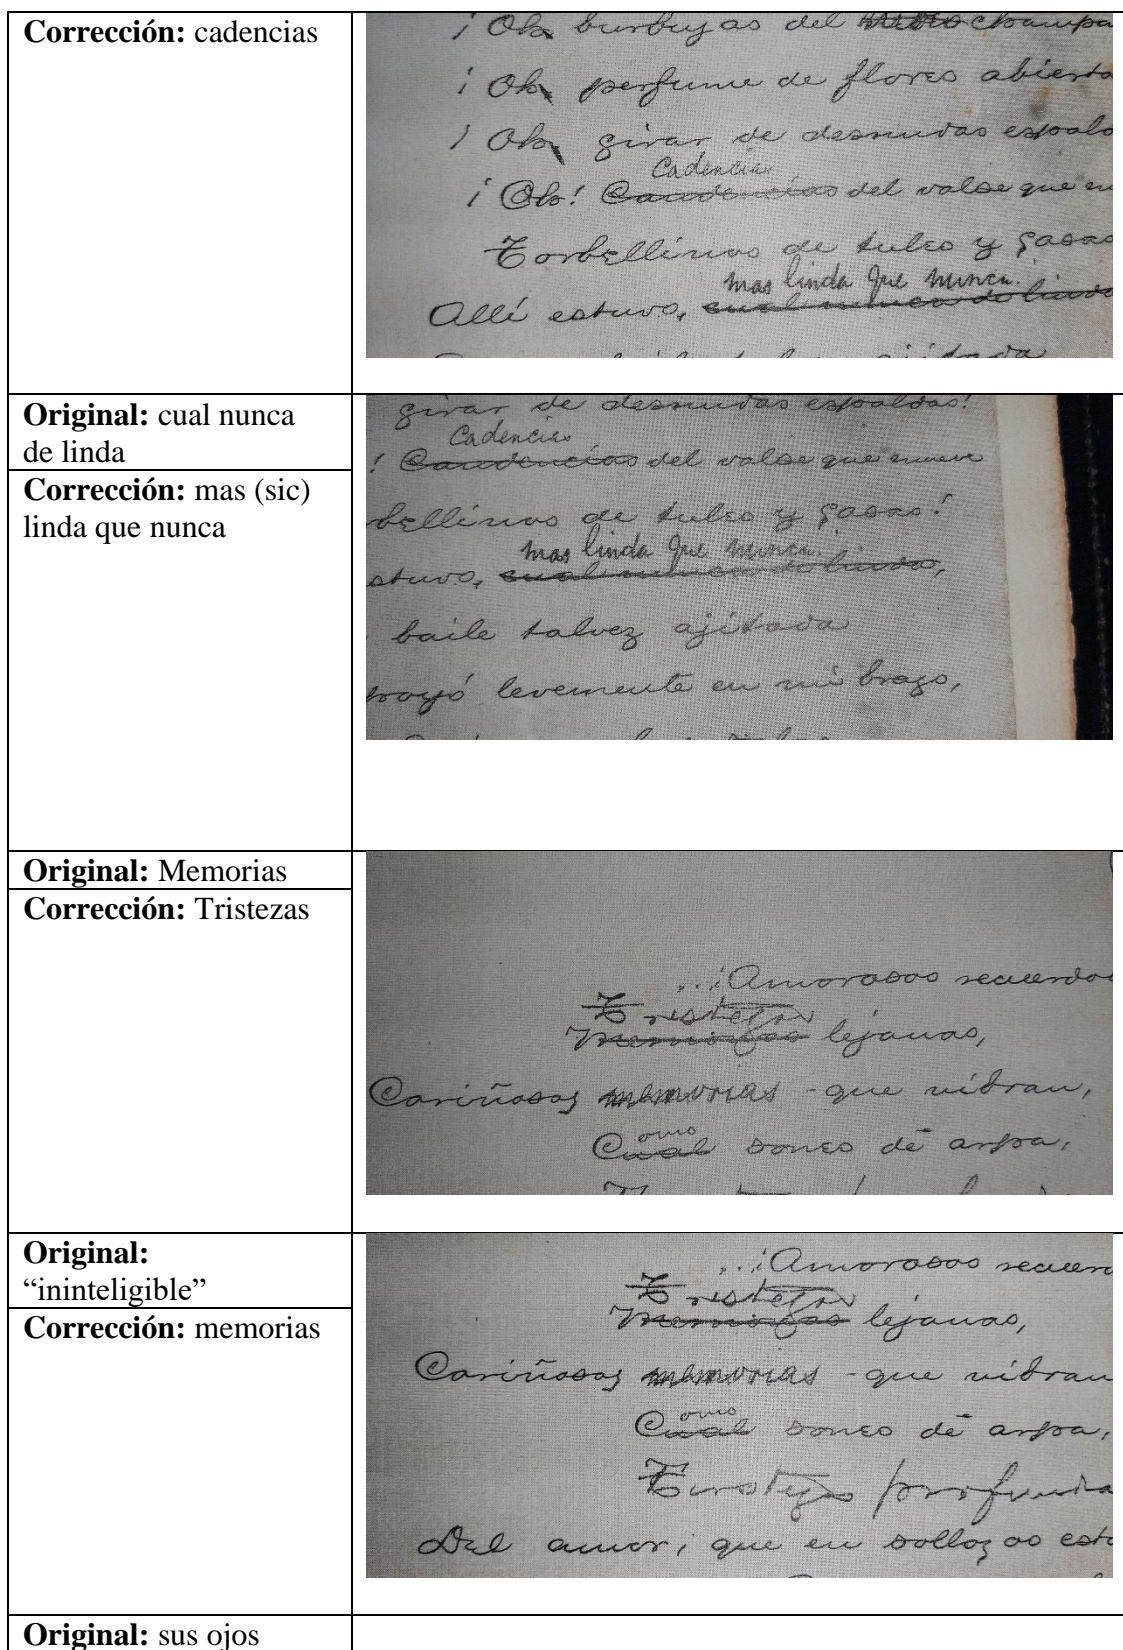 Corrección: cadencias
¡Oh burbujas del champa
¡Oh perfume de flores abierta
¡Oh girar de desnudas espald
Cadencias
¡Oh! Caudencias del valse que en
Torbellinos de tules y gasas
mas linda que nunca.
Allí estuvo, cual nunca de linda
Original: cual nunca
de linda
Corrección: mas (sic)
linda que nunca
girar de desnudas espaldas!
Cadencias
! Caudencias del valse que mueve
bellinos de tules y gasas!
mas linda que nunca.
stuvo, cual nunca de linda,
baile talvez ajitada
poyó levemente en mi brazo,
Original: Memorias
Corrección: Tristezas
...¡Amorosos recuerdos
Tristezas
Memorias lejanas,
Cariñosas memorias que vibran,
omo
Cual sones de arpa,
Original:
“ininteligible”
Corrección: memorias
...¡Amorosos recuer
Tristezas
Memorias lejanas,
Cariñosas memorias que vibran
omo
Cual sones de arpa,
Tristezas profunda
Del amor, que en sollozos est
Original: sus ojos